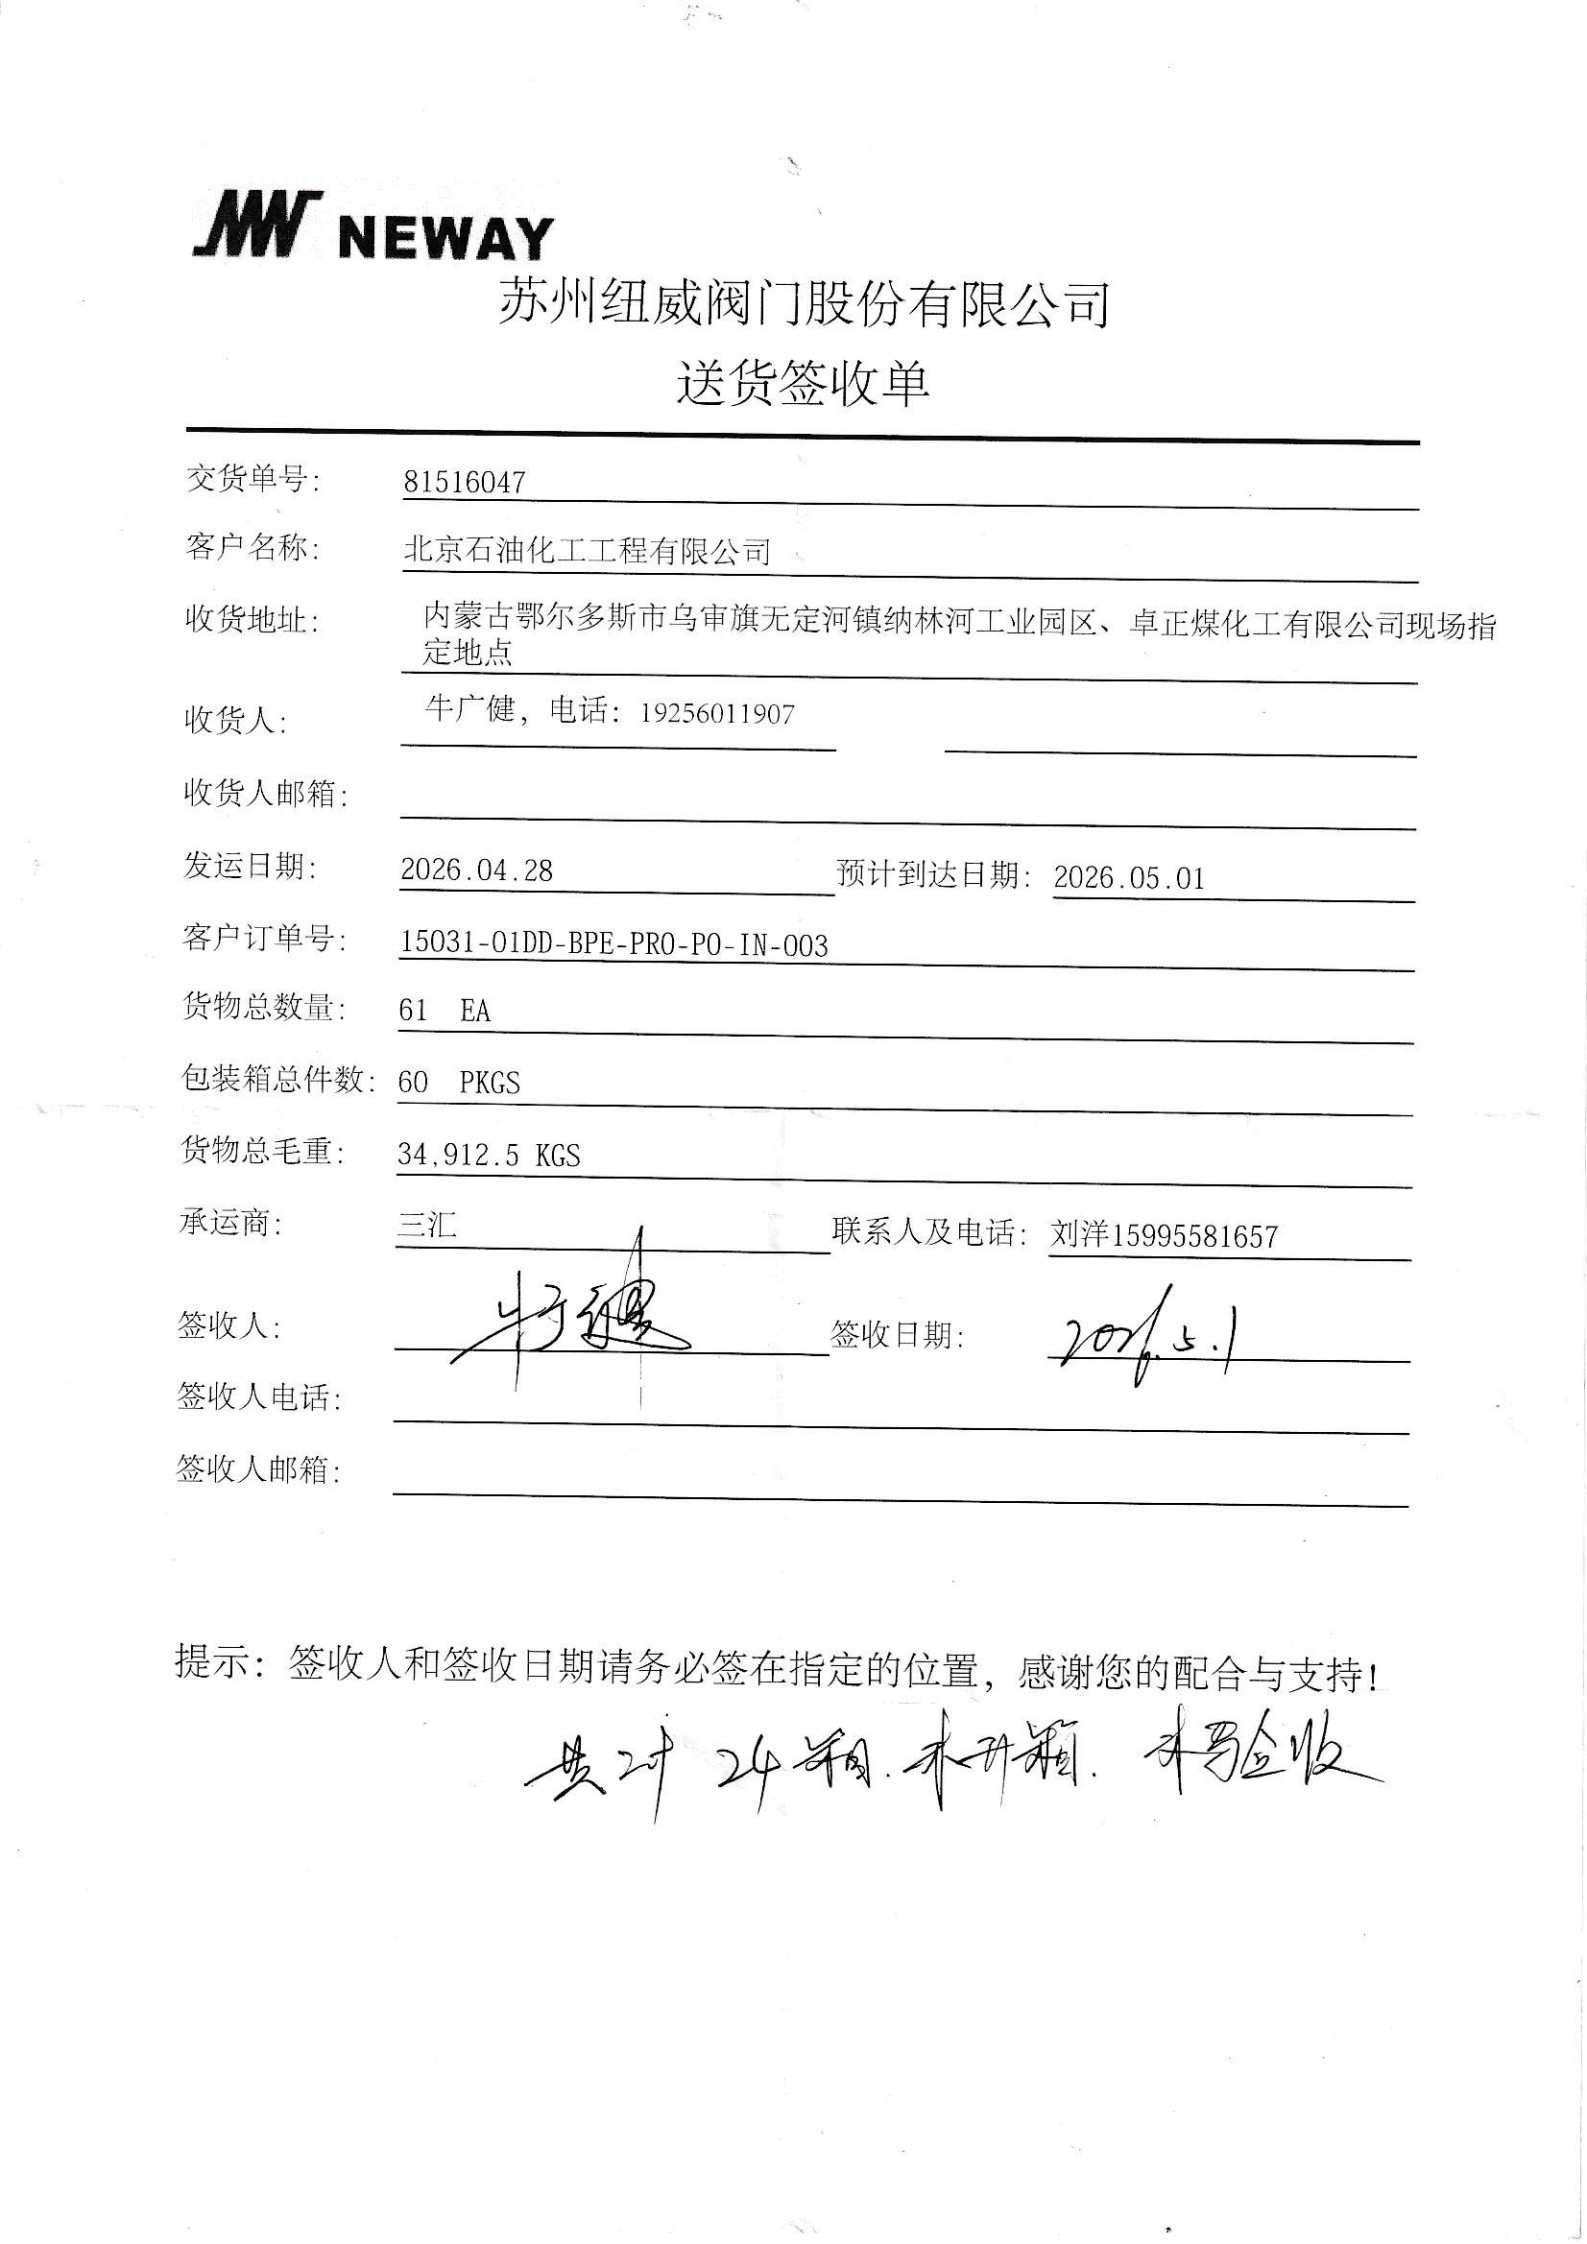 NEWAY
苏州纽威阀门股份有限公司
送货签收单
交货单号: 81516047
客户名称: 北京石油化工工程有限公司
收货地址: 内蒙古鄂尔多斯市乌审旗无定河镇纳林河工业园区、卓正煤化工有限公司现场指
定地点
收货人: 牛广健, 电话: 19256011907
收货人邮箱:
发运日期: 2026.04.28 预计到达日期: 2026.05.01
客户订单号: 15031-01DD-BPE-PRO-PO-IN-003
货物总数量: 61 EA
包装箱总件数: 60 PKGS
货物总毛重: 34,912.5 KGS
承运商: 三汇 联系人及电话: 刘洋15995581657
签收人: 牛广健 签收日期: 2026.5.1
签收人电话:
签收人邮箱:
提示: 签收人和签收日期请务必签在指定的位置, 感谢您的配合与支持!
共计 24箱. 未开箱. 未验收